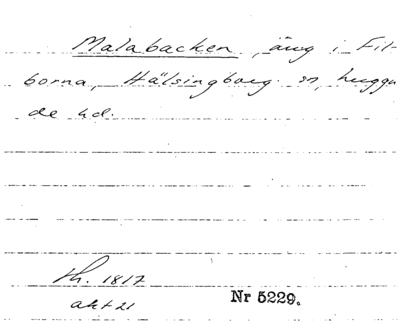 Malabacken, äng i Fil-
borna, Hälsingborg sn, Luggu
de hd.
th. 1817
akt 21
Nr 5229.